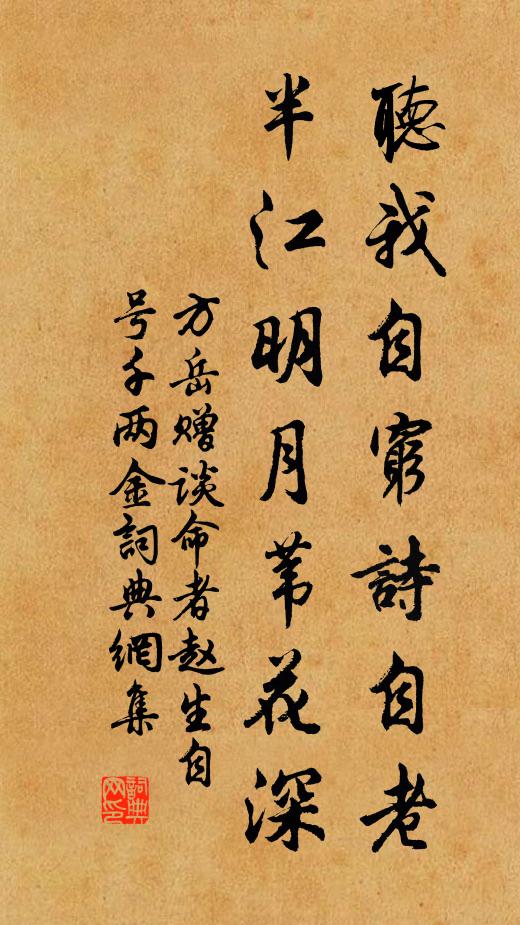 聽我自窮詩自老
半江明月苇花深
方岳赠谈命者赵生自
号千两金詞典網集
詞典
网印